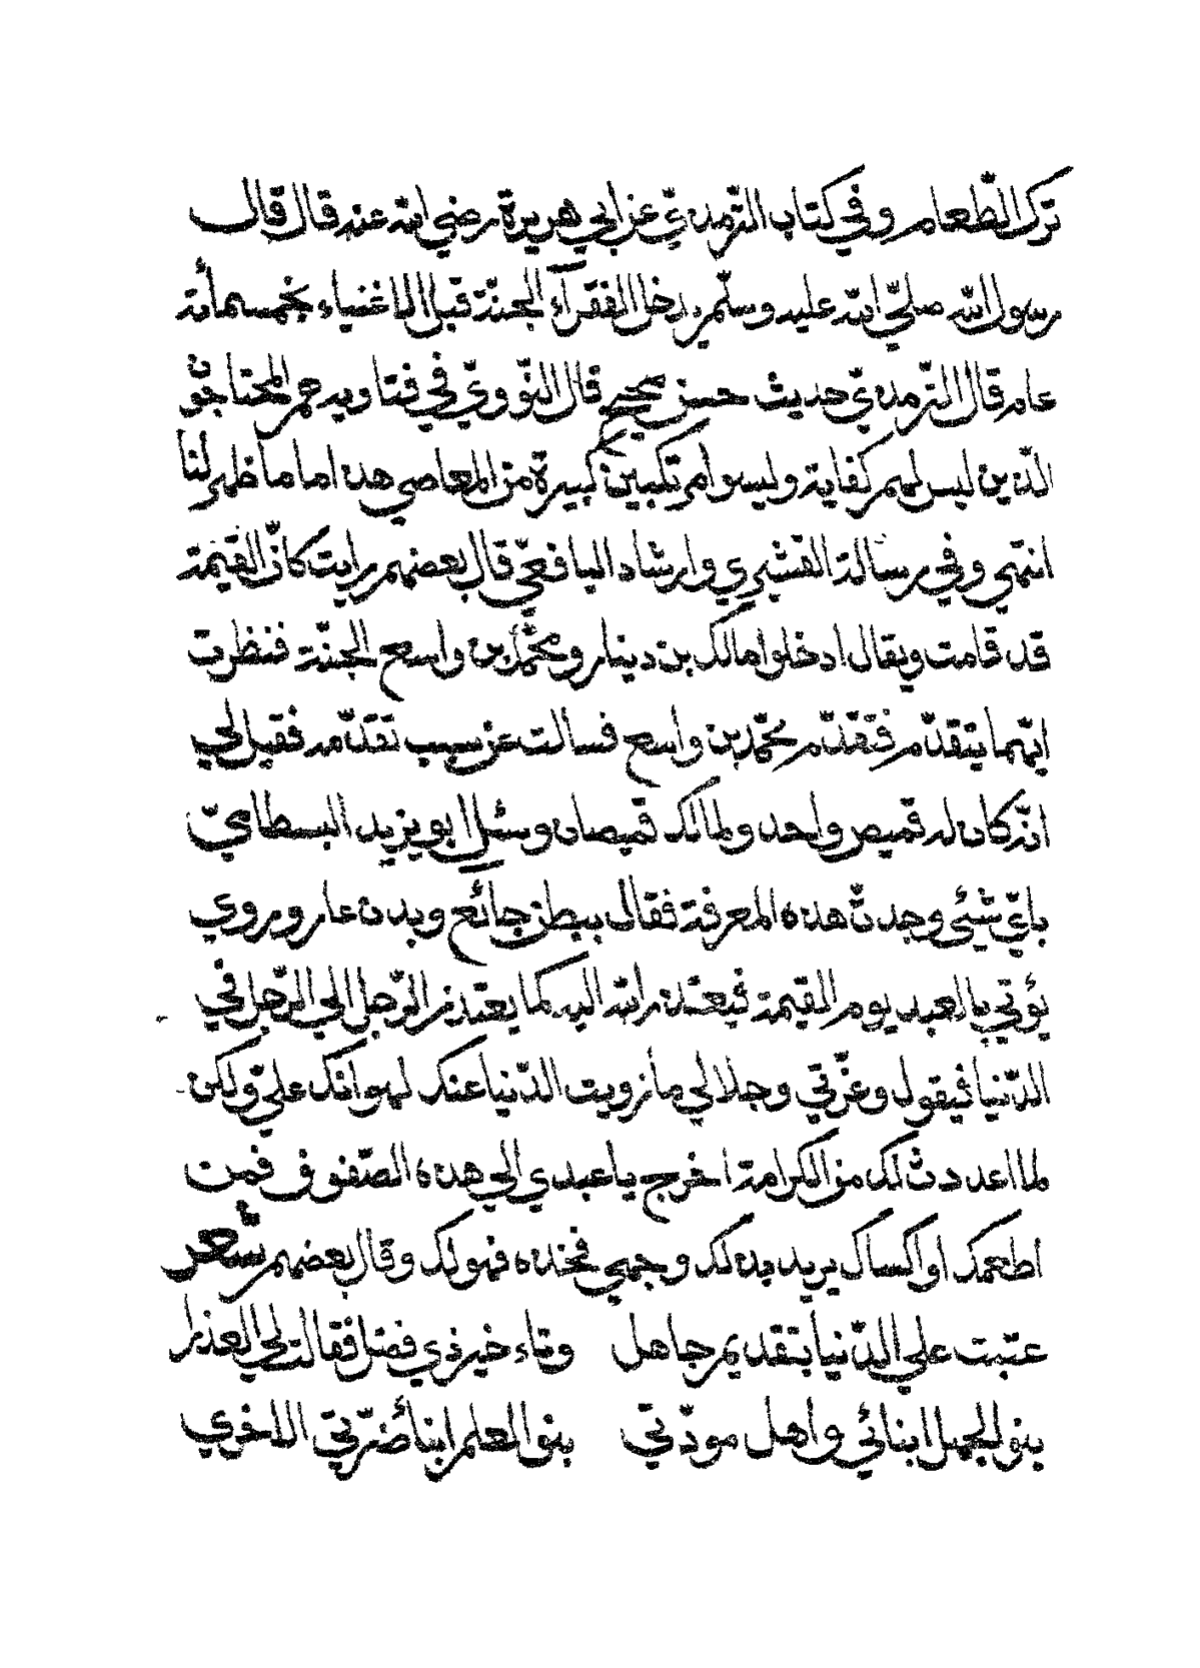 ترك الطّعام وفي كتاب التّرمذيّ عن ابي هريرة رضي الله عنه قال قال
رسول الله صليّ الله عليه وسلّم يدخل الفقرآء الجنّة قبل الاغنياء بخمسمأئة
عام قال التّرمذيّ حديث حسن صحيح قال النّوويّ في فتاويه هم المحتاجون
الّذين ليس لهم كفاية وليسوا مرتكبين كبيرة من المعاصي هذا ما ما ظهر لنا
انتهي وفي رسالة القشيري وارشاد اليافعيّ قال بعضهم رايت كانّ القيمة
قد قامت ويقال ادخلوا مالك بن دينار ومحمّد بن واسع الجنّة فنظرت
ايّهما يتقدّم فتقدّم محمّد بن واسع فسالت عن سبب تقدّمه فقيل لي
انّه كان له قميص واحد ولمالك قميصان وسئل ابو يزيد البسطاميّ
بايّ شيئ وجدتّ هذه المعرفة فقال ببطن جائع وبدن عار وروي
يؤتي بالعبد يوم القيمة فيعتذر الله اليه كما يعتذر الرّجل الي الرّجل في
الدّنيا فيقول وعزّتي وجلالي ما زويت الدّنيا عنك لهوانك عليّ ولكن
لما اعددتّ لك من الكرامة اخرج يا عبدي الي هذه الصّفوف فمن
اطعمك او اكساك يريد بذلك وجهي فخذه فهو لك وقال بعضهم شعر
عتبت علي الدّنيا بتقديم جاهل وتاء خير ذي فضل فقالت لي العذرا
بنو الجهل ابنائي واهل مودّتي بنو العلم ابنأ ضرّتي الاخري